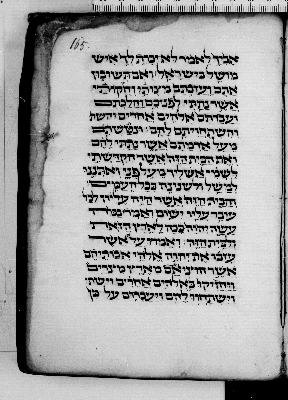 165.
אביך לאמר לא יכרת לך איש
מושל בישראל ואם תשובון
אתם ועזבתם מצותי וחקותי
אשר נתתי לפניכם והלכתם
ועבדתם אלהים אחרים והשת
והשתחויתם להם ונתשתים
מעל אדמתם אשר נתתי להם
ואת הבית הזה אשר הקדשתי
לשמי אשליך מעל פני ואתננו
למשל ולשנינה בכל העמים
והבית הזה אשר היה עליון לכל
עובר עליו ישום ואמר במה
עשה יהוה ככה לארץ הזאת
ולבית הזה ואמרו על אשר
עזבו את יהוה אלהי אבותיהם
אשר הוציאם מארץ מצרים
ויחזיקו באלהים אחרים וישת
וישתחוו להם ויעבדום על כן